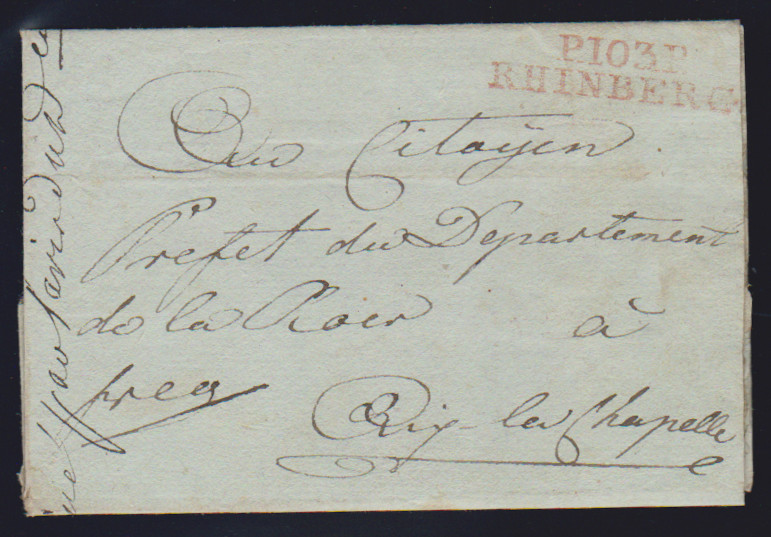 P103P
RHINBERG
Au Citoyen
Prefet du Departement
de la Roer à
Aix-la Chapelle